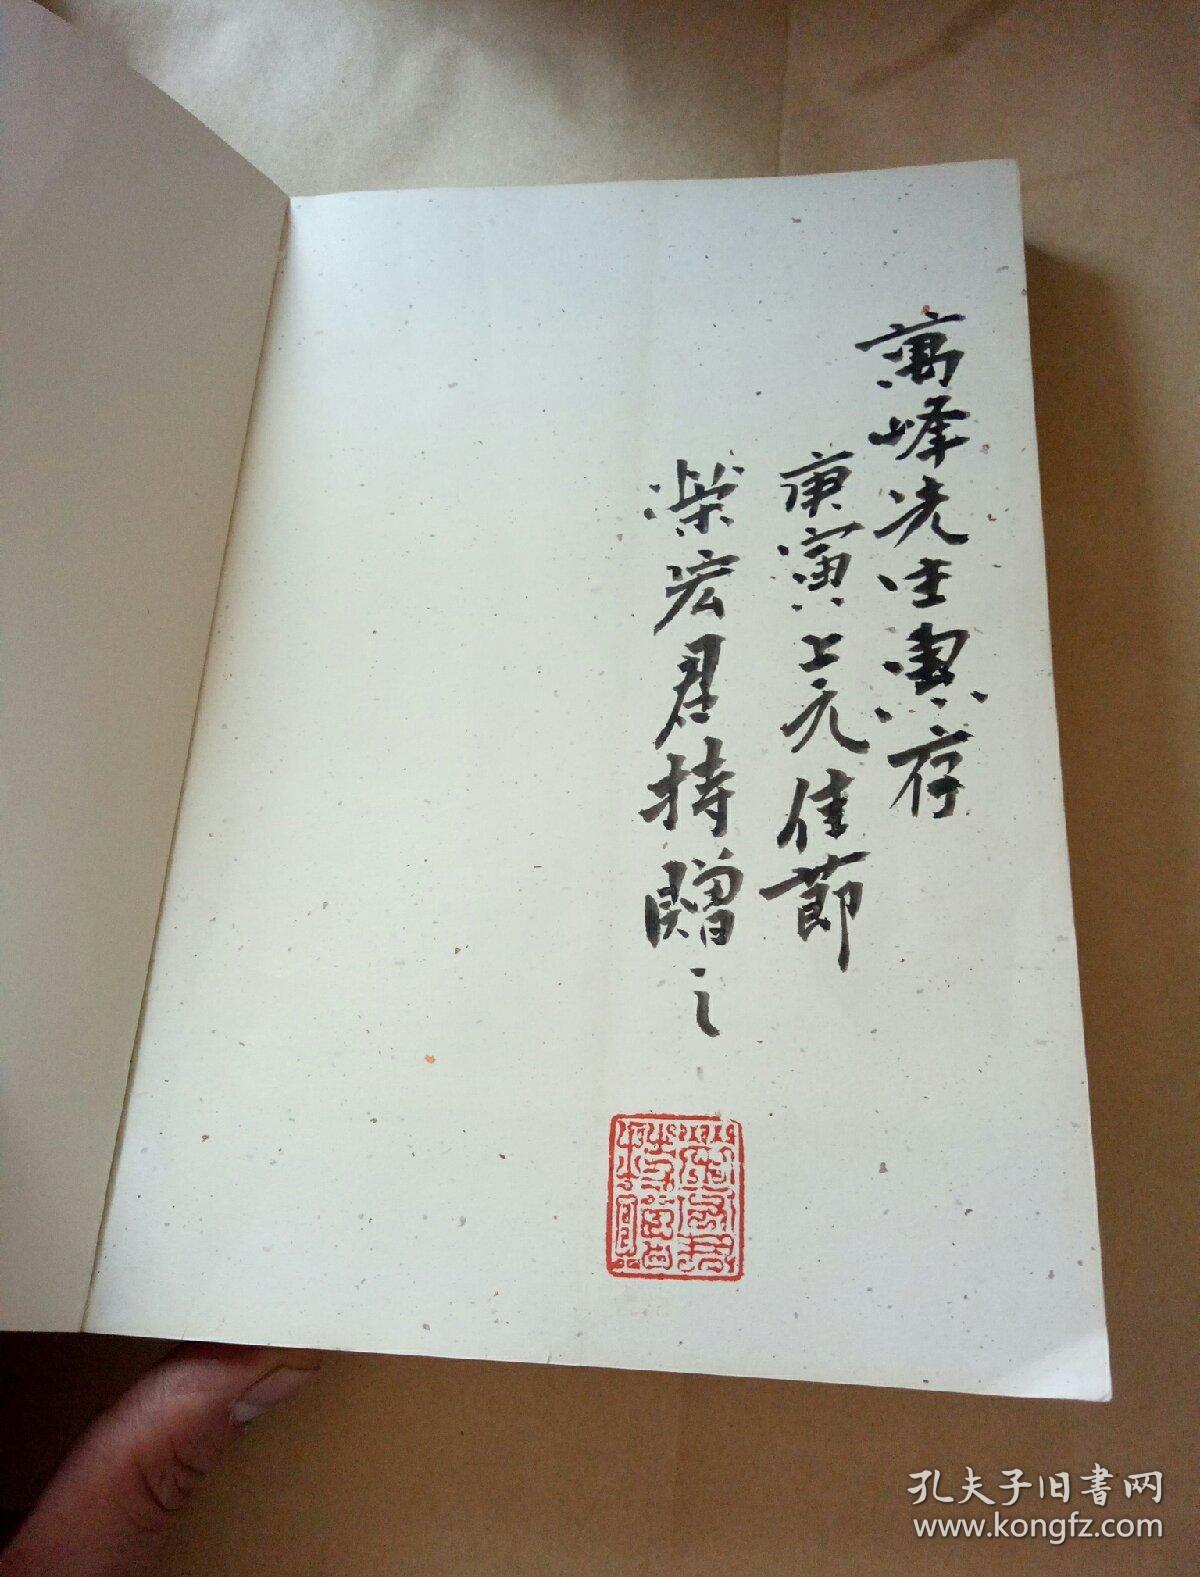 萬峰先生惠存
庚寅上元佳節
榮宏君持贈之
孔夫子旧书网
www.kongfz.com